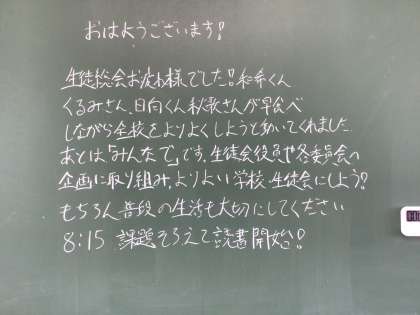 おはようございます!
生徒総会お疲れ様でした!和希くん
くるみさん、日向くん秋歌さんが早食べ
しながら全校をよりよくしようと動いてくれました
あとは「みんなで」です。生徒会役員や各委員会の
企画に取り組み、よりよい学校、生徒会にしよう!
もちろん普段の生活も大切にしてください
8:15 課題そろえて読書開始!